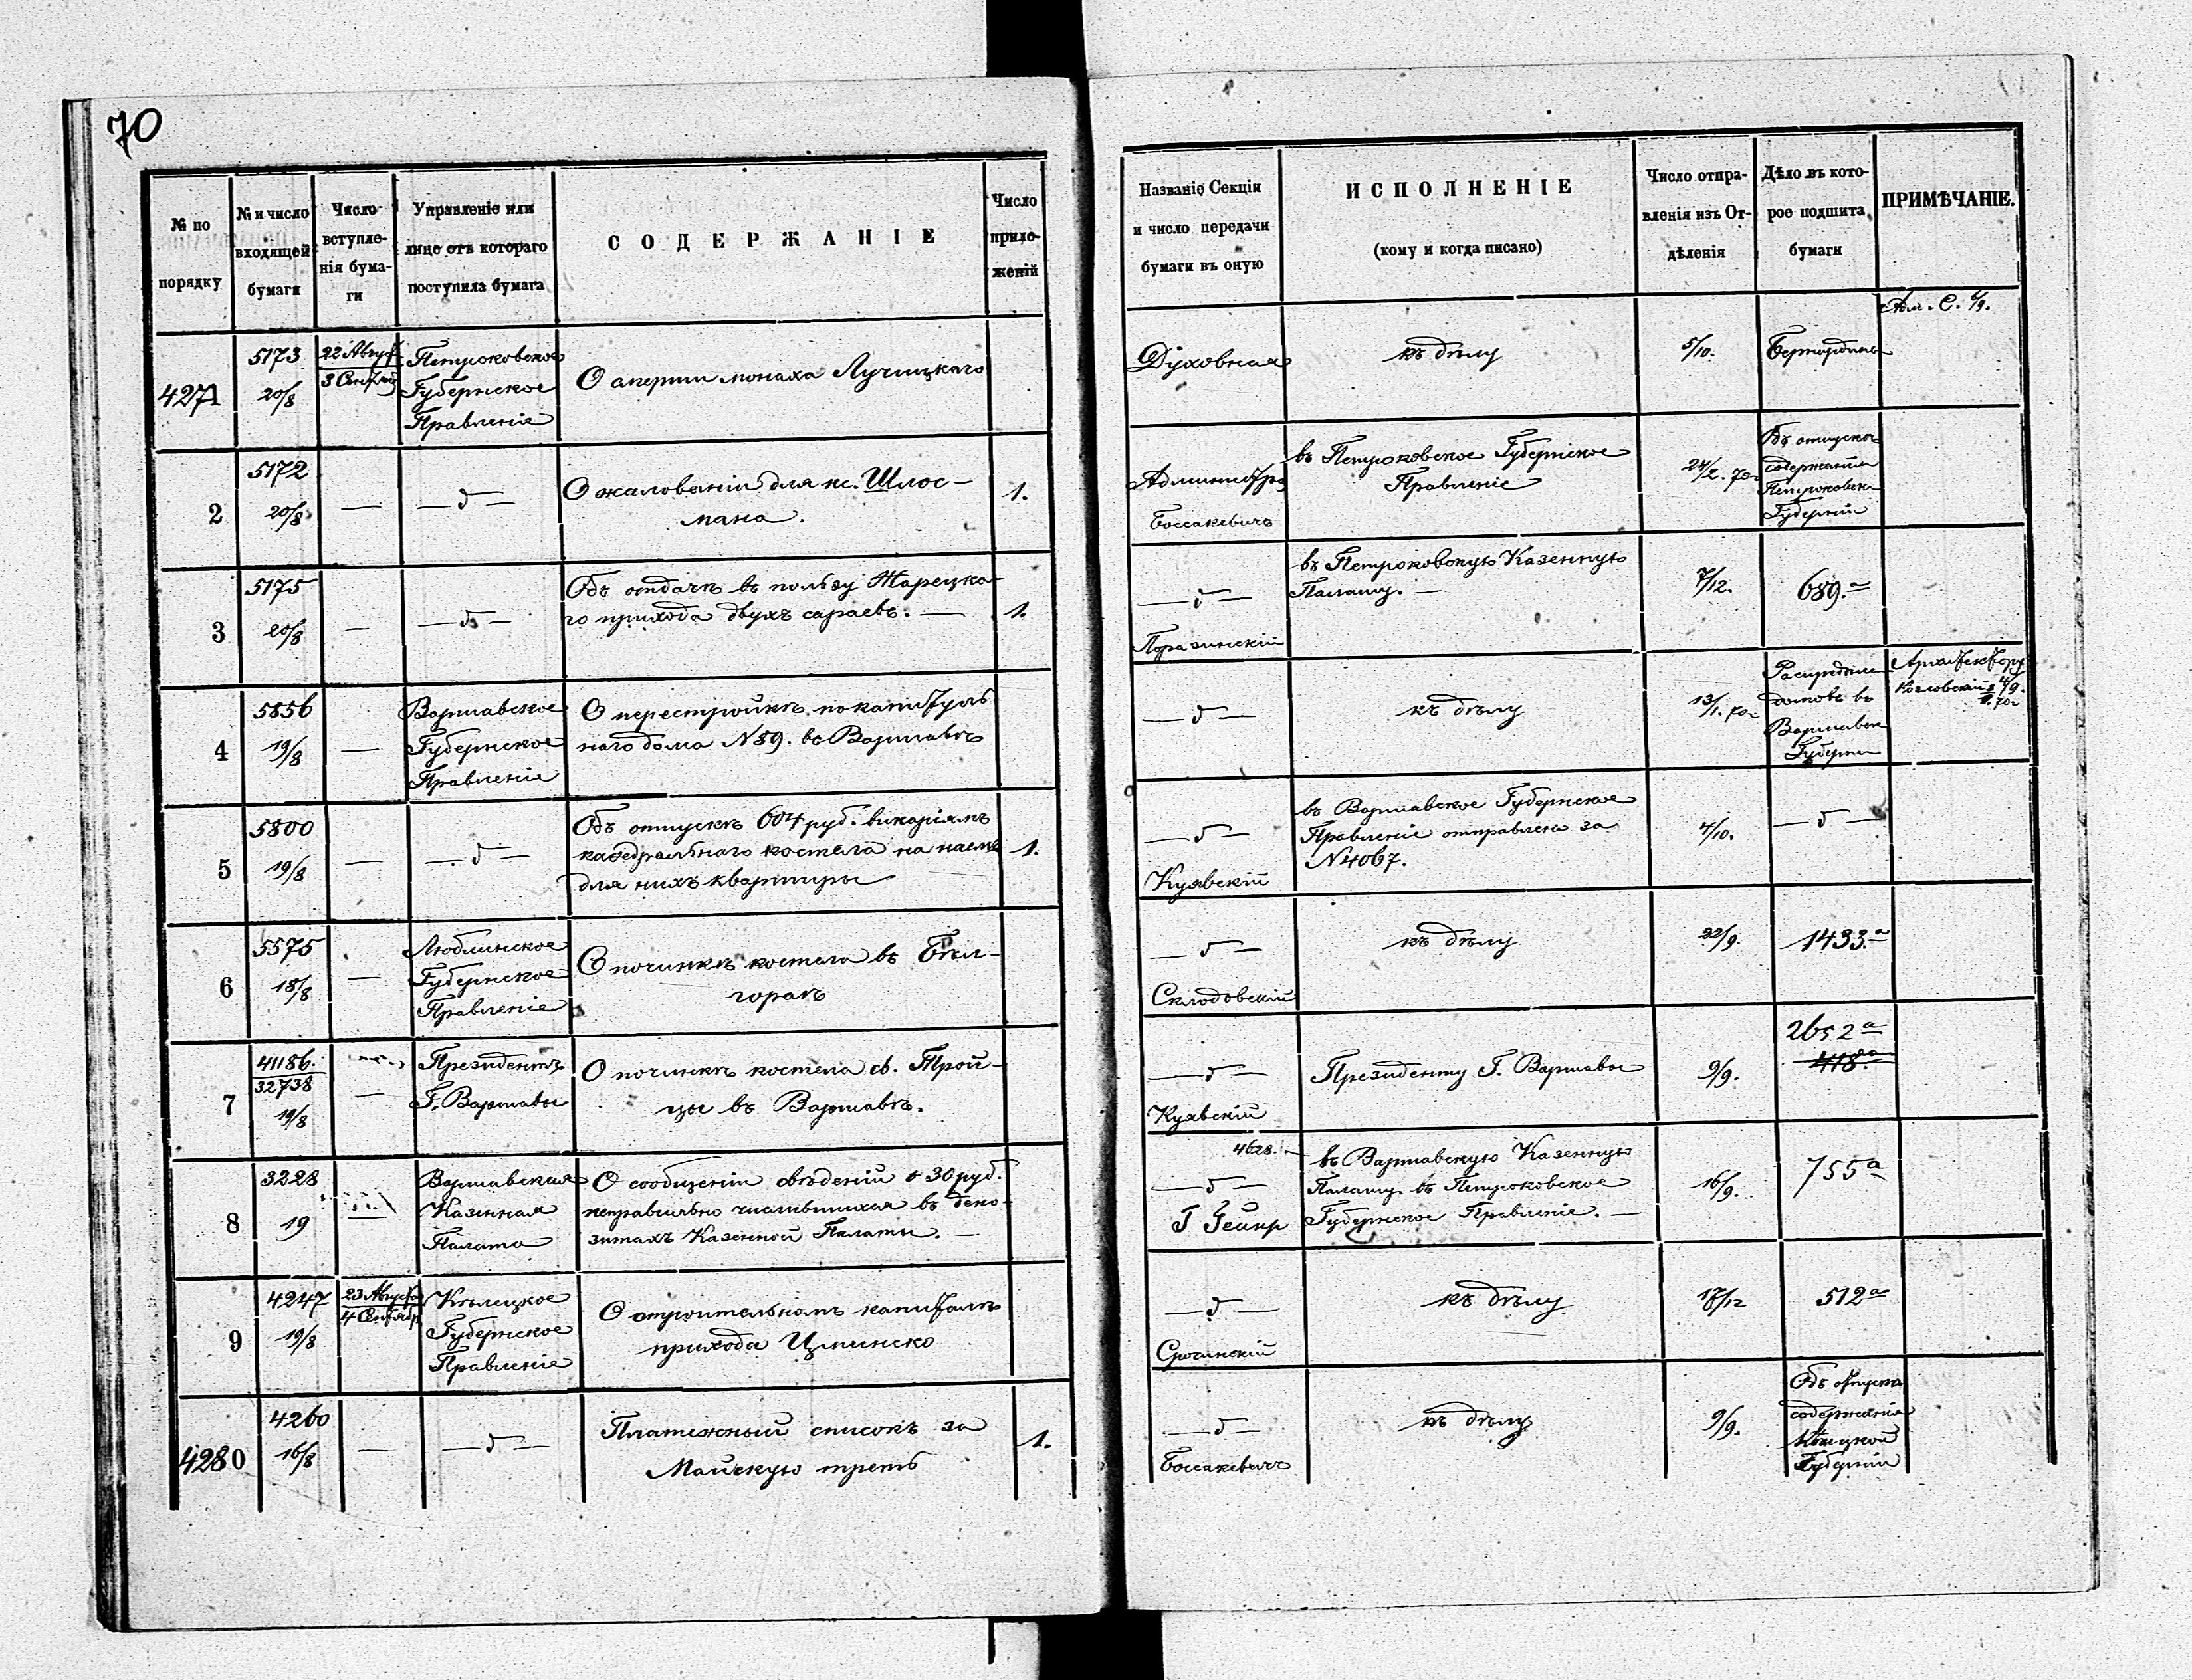 70
№ по
порядку
№ и число
входящей
бумаги
Число
вступле-
нія бума-
ги
Управленіе или
лице отъ котораго
поступила бумага
СОДЕРЖАНІЕ
Число
прило-
женій
Названіе Секціи
и число передачи
бумаги въ оную
ИСПОЛНЕНІЕ
(кому и когда писано)
Число отпра-
вленія изъ От-
дѣленія
Дѣло въ кото-
рое подшита
бумаги
ПРИМѢЧАНІЕ.
4271
5173
20/8
22 Август
3 Сентяб
Петроковское
Губернское
Правленіе
О смерти монаха Лучицкаго
Духовная
къ дѣлу
5/10.
Бернардины
Адм. С. 4/9.
2
5172
20/8
—
— " —
О жалованіи для кс. Шлос-
мана.
1.
Администра
Боссакевичъ
въ Петроковское Губернское
Правленіе
24/2. 70
Объ отпускѣ
содержанія
Петроковск
Губерніи
3
5175
20/8
—
— " —
Объ отдачѣ въ пользу Жарецка-
го прихода двухъ сараевъ. —
1.
— " —
въ Петроковскую Казенную
Палату. —
7/12.
689.а
4
5856
19/8
—
Варшавское
Губернское
Правленіе
О перестройкѣ покапитуль
наго дома N 89. въ Варшавѣ
— " —
къ дѣлу
13/1. 70
домовъ въ
Варшавск
Губерни
Архитектору
5
5800
19/8
—
— " —
Объ отпускѣ 604 руб. викаріямъ
кафедральнаго костела на наемъ
для нихъ квартиры
1.
— " —
Куявскій
въ Варшавское Губернское
Правленіе отправлено за
N 4067.
4/10.
— " —
6
5575
18/8
—
Люблинское
Губернское
Правленіе
О починкѣ костела въ Бѣл-
гораѣ
— " —
Склодовскій
къ дѣлу
22/9.
1433.а
7
41186.
32738
19/8
—
Президентъ
Г. Варшавы
О починкѣ костела св. Трой-
цы въ Варшавѣ.
— " —
Куявскій
Президенту Г. Варшавы
9/9.
2652а
418.а
8
3228
19
—
Варшавская
Казенная
Палата
О сообщеніи свѣденій о 30 руб.
неправильно числившихся въ депо-
зитахъ Казенной Палаты. —
4628.
— " —
въ Варшавскую Казенную
Палату въ Петроковское
Губернское Правленіе. —
16/9.
755а
9
4247
19/8
23 Августа
4 Сентябр
Кѣлецкое
Губернское
Правленіе
О строительномъ капиталѣ
прихода Цминско
— " —
къ дѣлу
17/12
512а
4280
4260
16/8
—
— " —
Платежный списокъ за
Майскую треть
1.
— " —
Боссакевичъ
къ дѣлу
9/9.
Объ отпускѣ
содержанія
Кѣлецкой
Губерніи